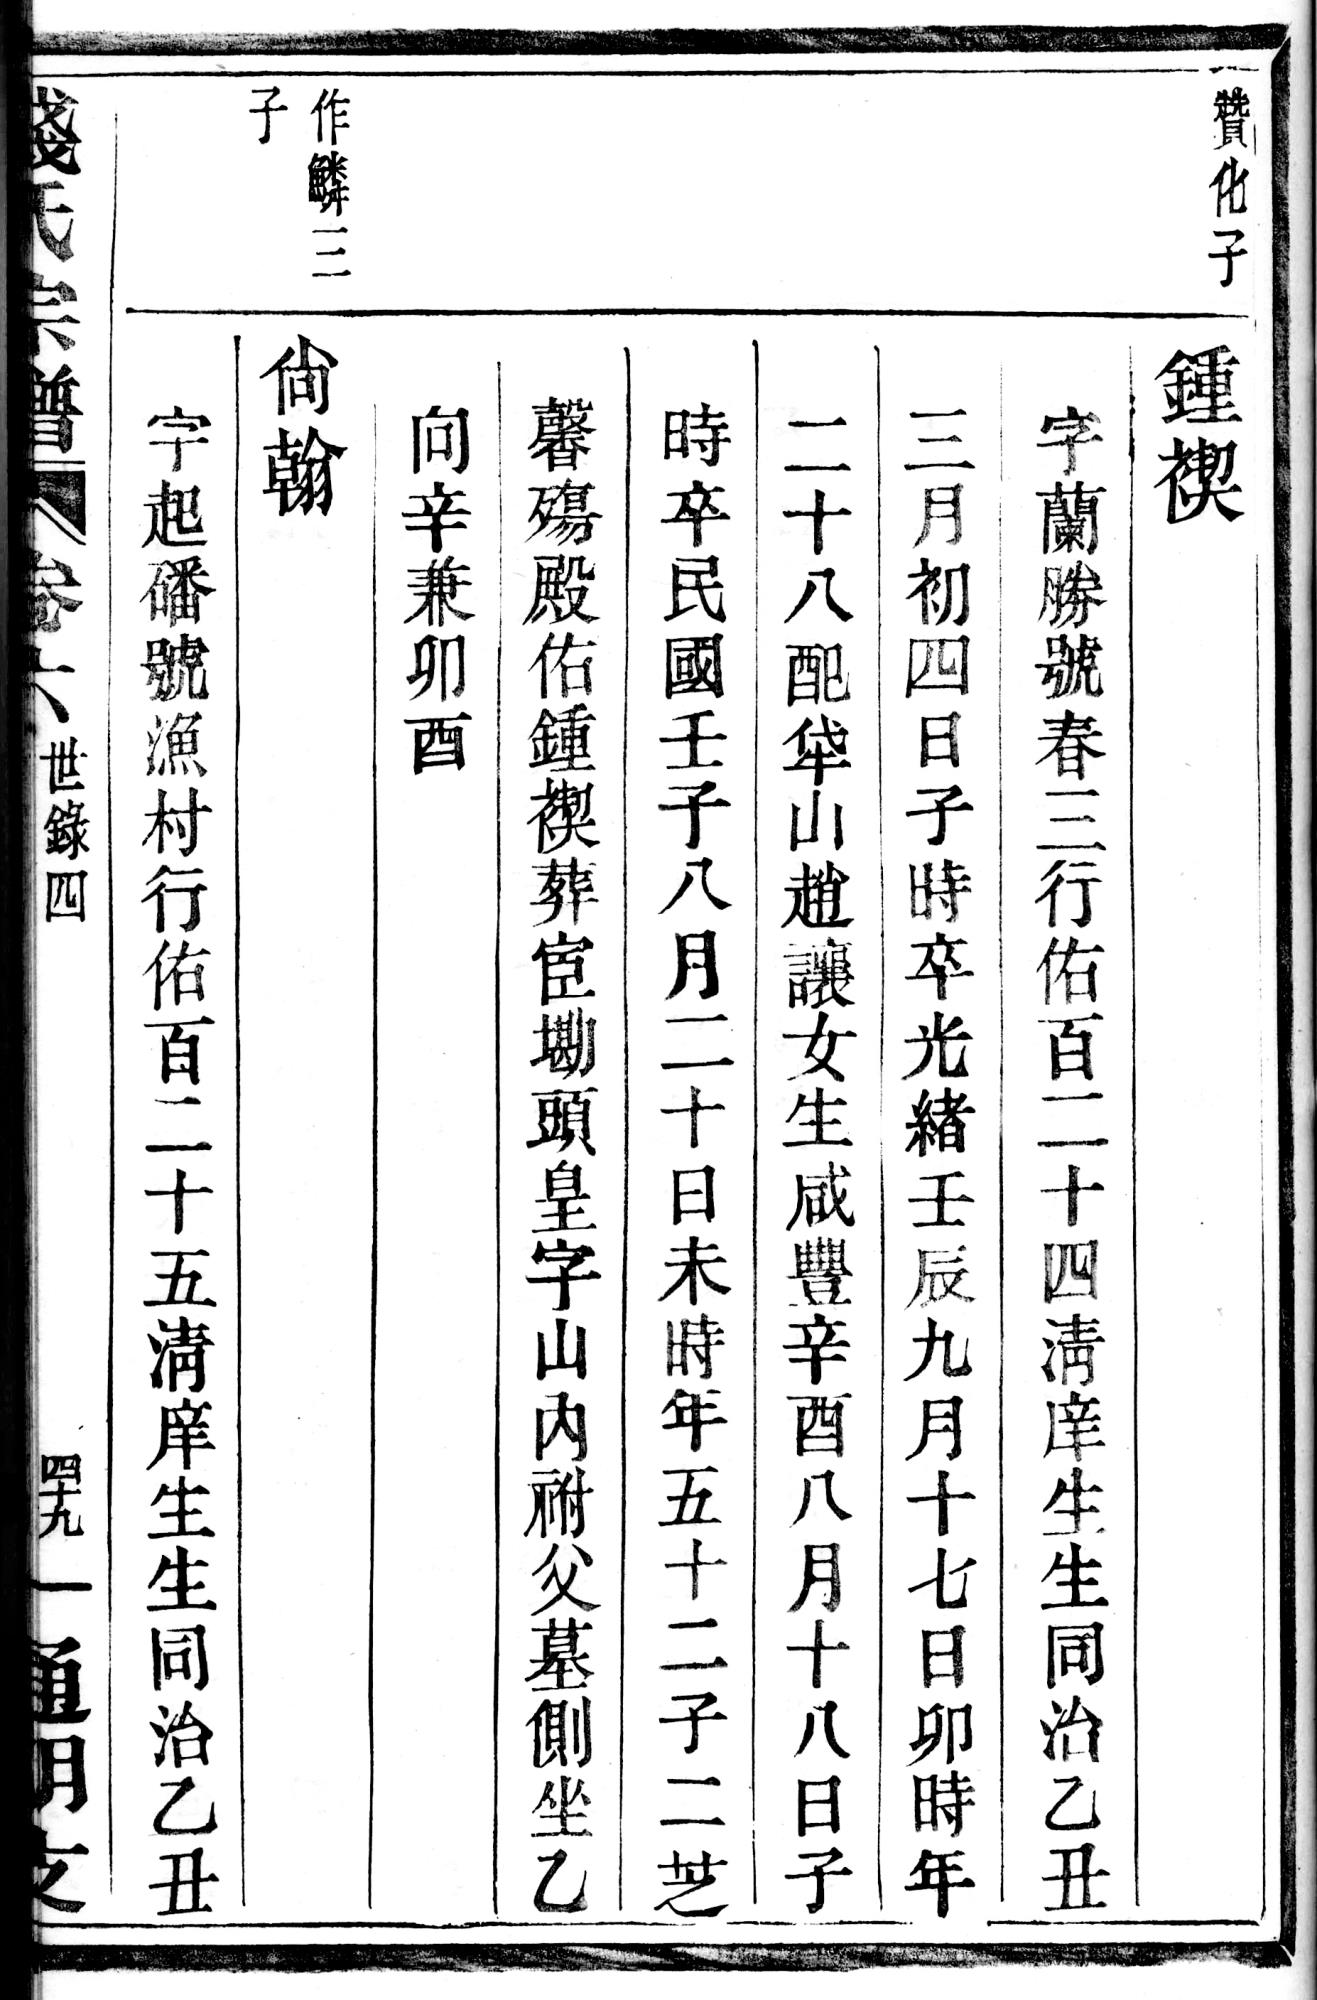 贊化子
鍾禊
字蘭勝號春三行佑百二十四淸庠生生同治乙丑
三月初四日子時卒光緒壬辰九月十七日卯時年
二十八配㟁山趙讓女生咸豐辛酉八月十八日子
時卒民國壬子八月二十日未時年五十二子二芝
馨殤殿佑鍾禊葬宦墈頭皇字山內祔父墓側坐乙
向辛兼卯酉
作鱗三
子
尙翰
字起磻號漁村行佑百二十五淸庠生生同治乙丑
錢氏宗譜 卷六 世錄四 四十九 通明支